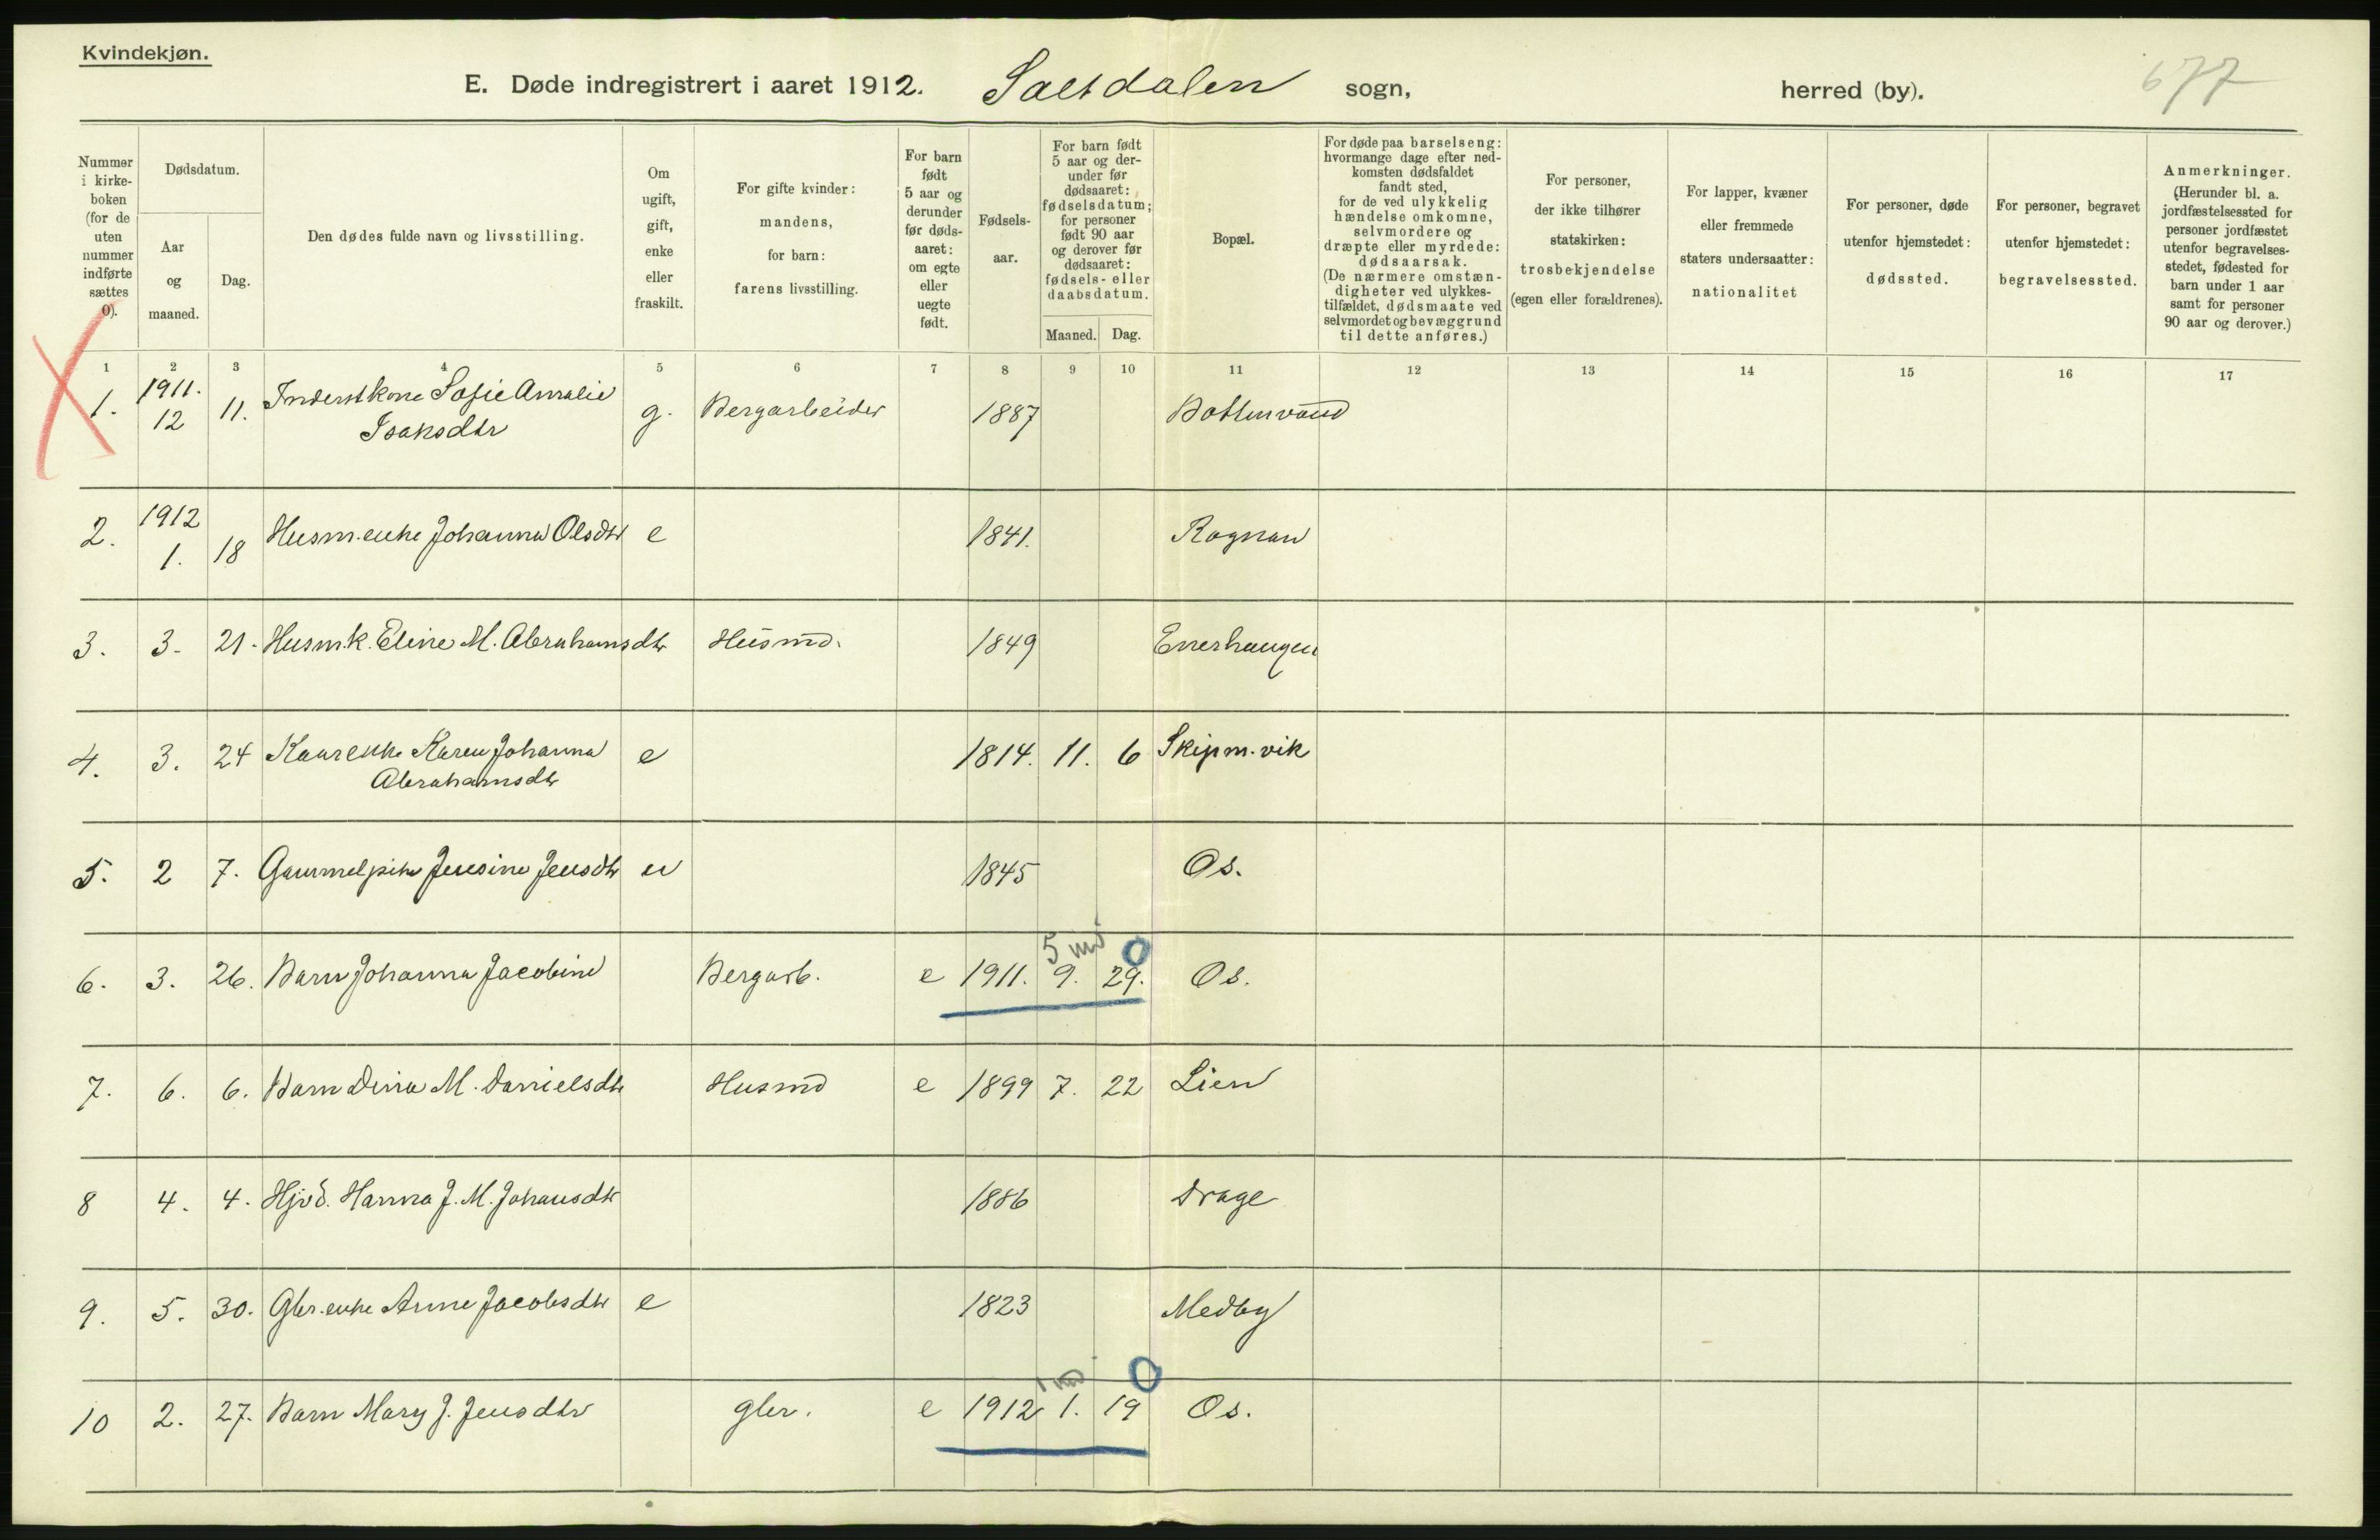 Kvindekjøn.
E. Døde indregistrert i aaret 1912. Saltdalen sogn, herred (by). 677
Nummer i kirkeboken (for de uten nummer indførte sættes 0).
Dødsdatum.
Aar og maaned.
Dag.
Den dødes fulde navn og livsstilling.
Om ugift, gift, enke eller fraskilt.
For gifte kvinder: mandens, for barn: farens livsstilling.
For barn født 5 aar og derunder før dødsaaret: om egte eller uegte født.
Fødselsaar.
For barn født 5 aar og derunder før dødsaaret: fødselsdatum; for personer født 90 aar og derover før dødsaaret: fødsels- eller daabsdatum.
Maaned. Dag.
Bopæl.
For døde paa barselseng: hvormange dage efter nedkomsten dødsfaldet fandt sted, for de ved ulykkelig hændelse omkomne, selvmordere og dræpte eller myrdede: dødsaarsak. (De nærmere omstændigheter ved ulykkestilfældet, dødsmaate ved selvmordet og bevæggrund til dette anføres.)
For personer, der ikke tilhører statskirken: trosbekjendelse (egen eller forældrenes).
For lapper, kvæner eller fremmede staters undersaatter: nationalitet
For personer, døde utenfor hjemstedet: dødssted.
For personer, begravet utenfor hjemstedet: begravelsessted.
Anmerkninger. (Herunder bl. a. jordfæstelsessted for personer jordfæstet utenfor begravelsesstedet, fødested for barn under 1 aar samt for personer 90 aar og derover.)
1 2 3 4 5 6 7 8 9 10 11 12 13 14 15 16 17
1. 1911. 12 11. Inderstkone Sofie Amalie Isaksdtr g. Bergarbeider 1887 Bottenvand
2. 1912 1. 18 Husm.enke Johanna Olsdtr e 1841. Rognan
3. 3. 21. Husm.k. Eline M. Abrahamsdtr Husmd. 1849 Enerhaugen
4. 3. 24 Kaarenke Karen Johanna Abrahamsdtr e 1814. 11. 6 Skipm.vik
5. 2 7. Gammelpike Jensine Jensdtr u 1845 Os.
6. 3. 26. Barn Johanna Jacobine Bergarb. e 1911. 9. 29. Os.
5 md 0
7. 6. 6. Barn Dina M. Danielsdtr Husmd e 1899 7. 22 Lien
8 4. 4. Hjvd. Hanna J. M. Johansdtr 1886 Drage
9. 5. 30. Gbr.enke Anne Jacobsdtr e 1823 Medby
10 2. 27. Barn Mary J. Jensdtr gbr. e 1912 1. 19 Os.
1 md 0